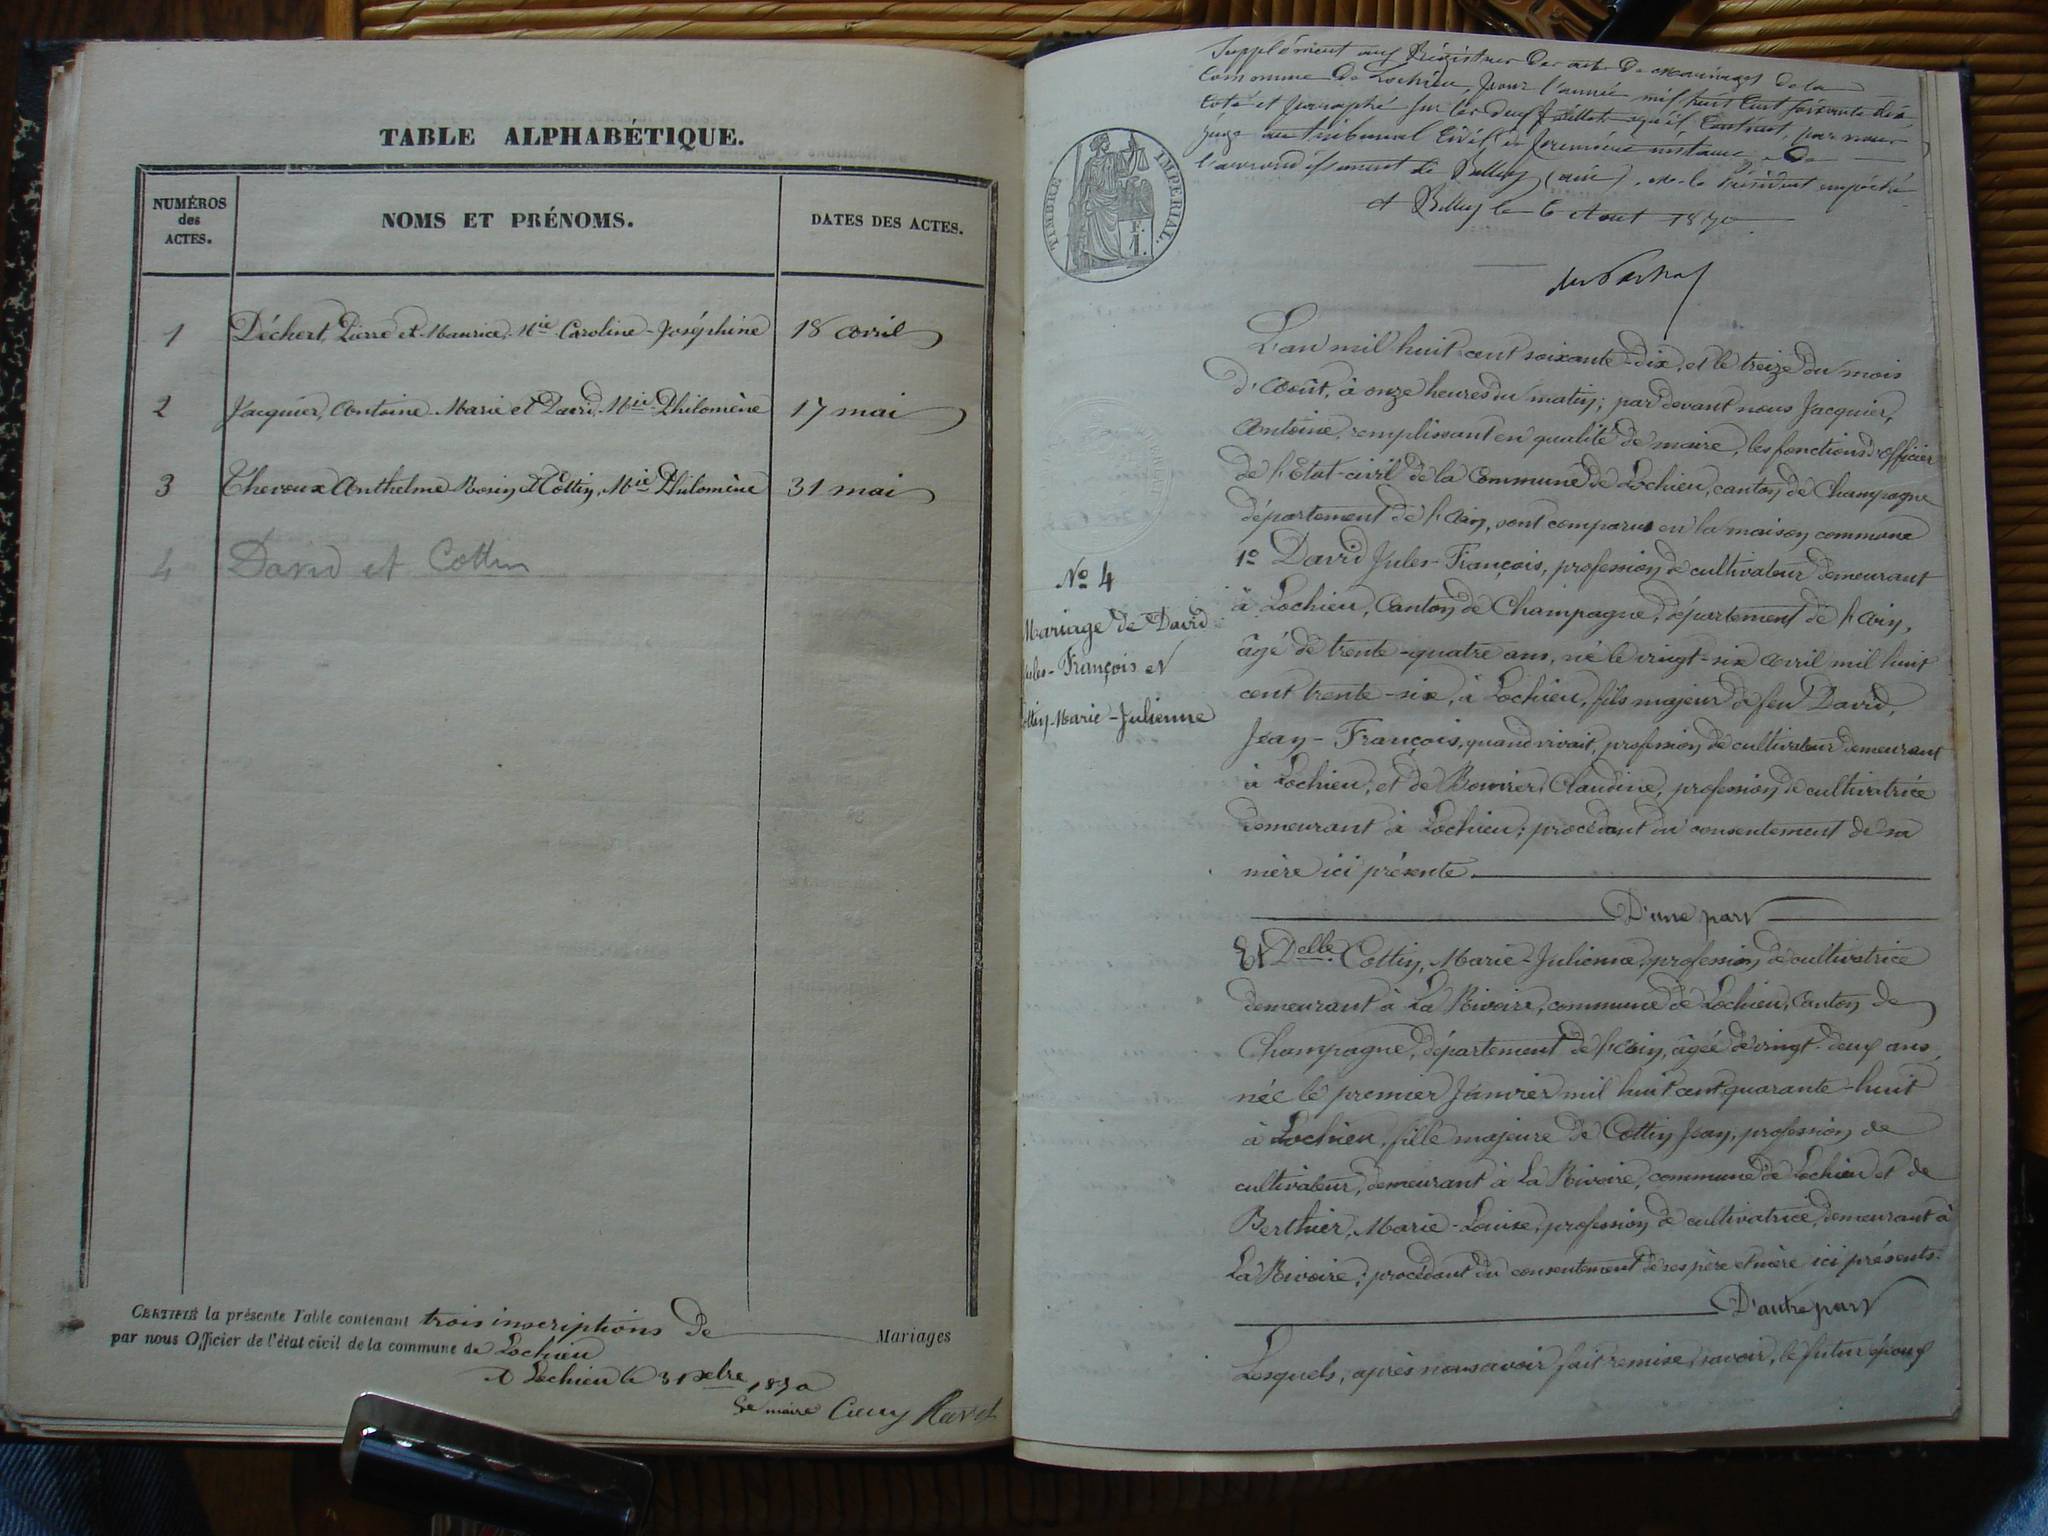 TABLE ALPHABÉTIQUE.
NUMÉROS des ACTES.
NOMS ET PRÉNOMS.
DATES DES ACTES.
1 Déchert, Pierre et Maurice, Mie Caroline-Joséphine 18 avril
2 Jacquier, Antoine Marie et David, Mie Philomène 17 mai
3 Thevoux Anthelme Rosin et Cottin, Mie Philomène 31 mai
4 David et Cottin
CERTIFIÉ la présente Table contenant trois inscriptions de Mariages
par nous Officier de l'état civil de la commune de Lochieu
A Lochieu le 31 xbre 1870
Le maire
Supplément aux Régistres des actes de mariages de la
Commune de Lochieu, pour l'année mil huit cent soixante dix
Coté et paraphé sur les deux feuillets qu'il contient, par nous
juge au tribunal civil de première instance de
l'arrondissement de Belley (ain), Mr le Président empêché
A Belley le 6 Aout 1870
TIMBRE IMPERIAL.
1 F.
L'an mil huit cent soixante-dix, et le treize du mois
d'Août, à onze heures du matin; par devant nous Jacquier,
Antoine, remplissant en qualité de maire, les fonctions d'officier
de l'Etat-civil de la Commune de Lochieu, canton de Champagne
département de l'Ain, sont comparus en la maison commune
1º David Jules-François, profession de cultivateur demeurant
à Lochieu, Canton de Champagne, département de l'Ain,
âgé de trente-quatre ans, né le vingt-six Avril mil huit
cent trente-six, à Lochieu, fils majeur de feu David,
Jean-François, quand vivait, profession de cultivateur demeurant
à Lochieu, et de Bouvier, Claudine, profession de cultivatrice
demeurant à Lochieu; procédant du consentement de sa
mère ici présente.
D'une part
Nº 4
Mariage de David
Jules-François et
Cottin Marie-Julienne
Et Delle Cottin, Marie-Julienne, profession de cultivatrice
demeurant à La Rivoire, commune de Lochieu, Canton de
Champagne, département de l'Ain, âgée de vingt-deux ans,
née le premier Janvier mil huit cent quarante-huit
à Lochieu, fille majeure de Cottin Jean, profession de
cultivateur, demeurant à La Rivoire, commune de Lochieu et de
Berthier, Marie-Louise, profession de cultivatrice, demeurant à
La Rivoire; procédant du consentement de ses père et mère ici présents.
D'autre part
Lesquels, après nous avoir fait remise, savoir, le futur époux